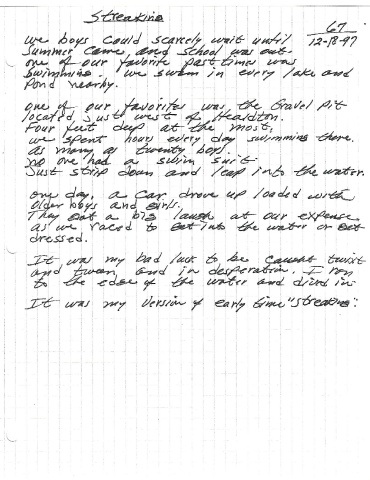 Streaking
67
12-18-97
we boys could scarcely wait until
summer came, and school was out.
one of our favorite past times was
swimming. we swam in every lake and
pond nearby.
one of our favorites was the Gravel Pit
located just west of Healdton.
Four feet deep at the most,
we spent hours every day swimming there.
as many as twenty boys.
no one had a swim suit.
Just strip down and leap into the water.
one day, a car drove up loaded with
older boys and girls.
They got a big laugh at our expense
as we raced to get into the water or get
dressed.
It was my bad luck to be caught twixt
and tween, and in desperation. I ran
to the edge of the water and dived in
It was my version of early time "streaking".